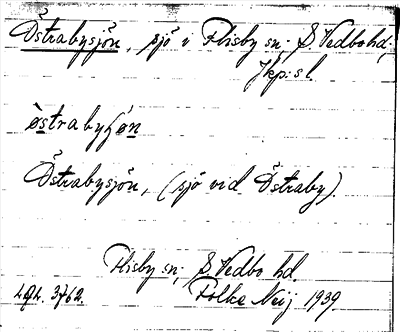 Östrabysjön, sjö i Flisby sn; S Vedbo hd;
Jkp:s l.
östrabyʃön
Östrabysjön, (sjö vid Östraby).
Flisby sn, S Vedbo hd.
Folke Neij 1939.